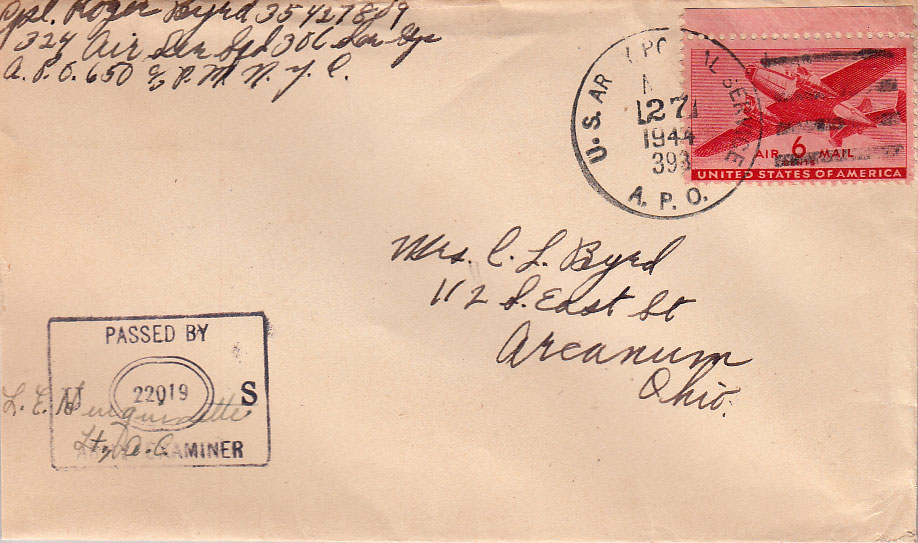 Cpl. Roger Byrd 35427889
324 Air Ser Gp 306 Ser Gp
A.P.O. 650 % P.M. N.Y.C.
U.S. ARMY POSTAL SERVICE
27
1944
393
A. P. O.
AIR 6 MAIL
CENTS
UNITED STATES OF AMERICA
Mrs. C. L. Byrd
112 S. East St
Arcanum
Ohio.
PASSED BY
U 22019 S
L. E.
Lt, A.C.
ARMY EXAMINER